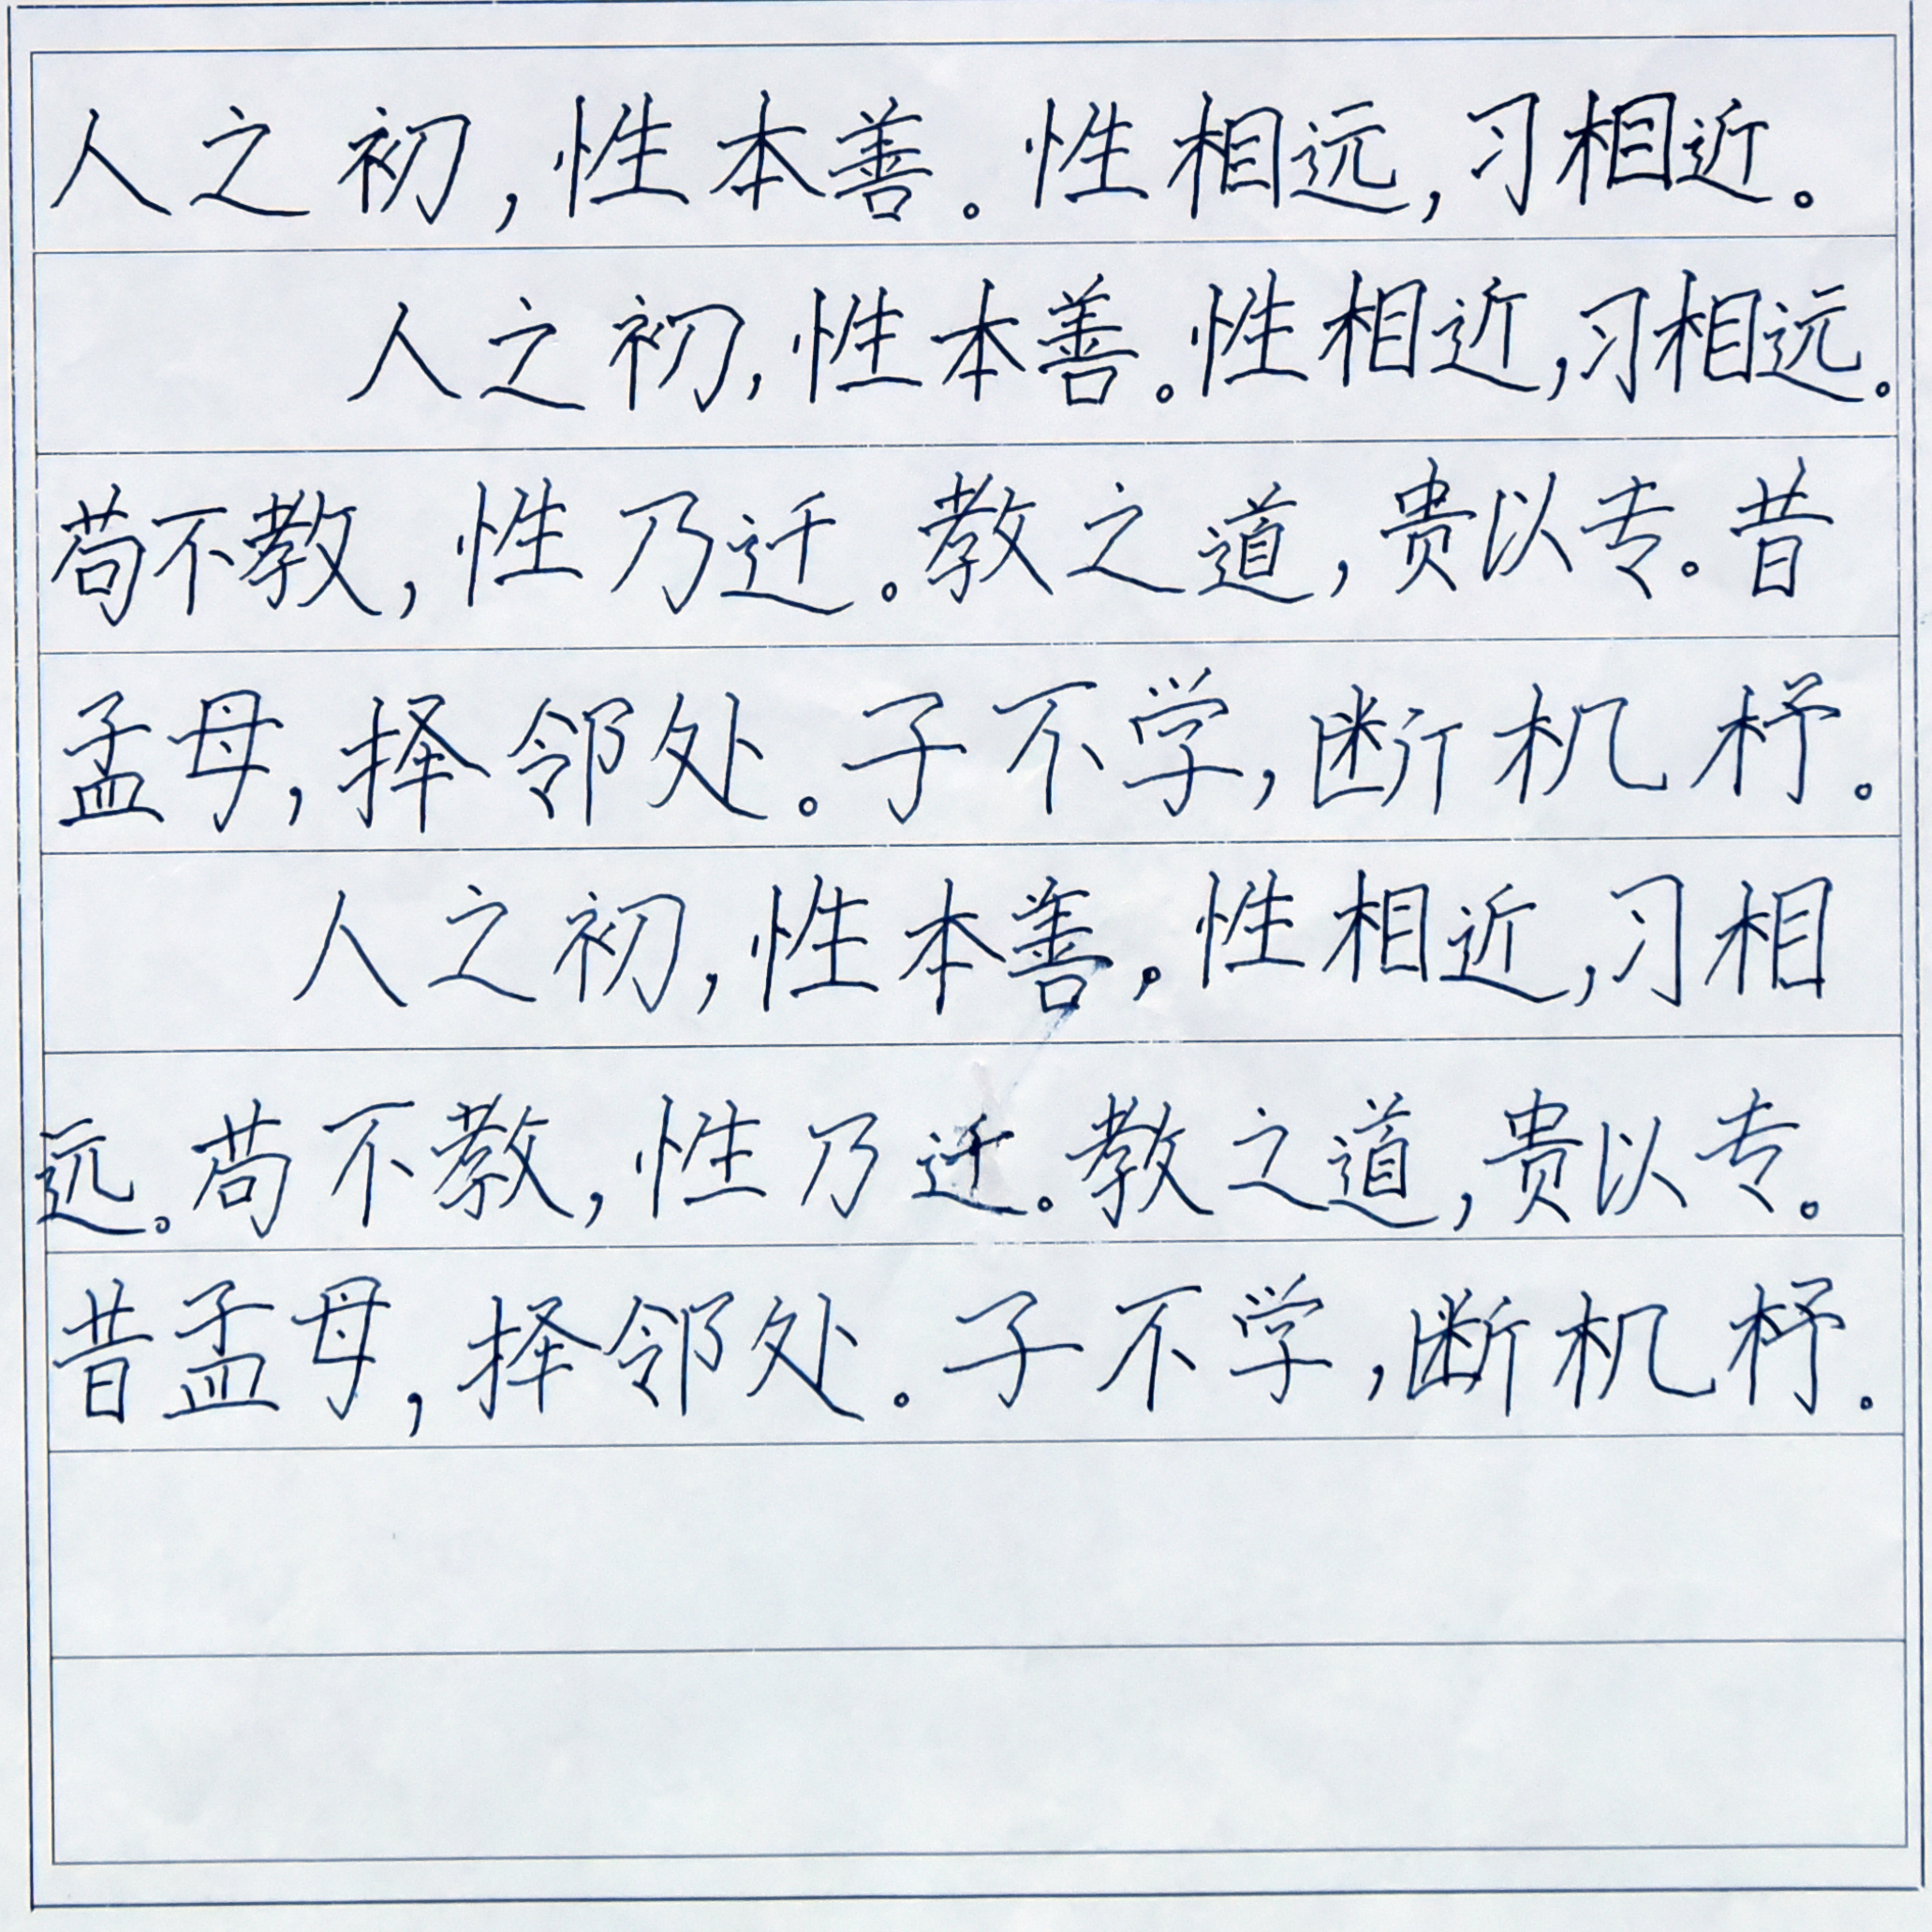 人之初，性本善。性相远，习相近。
人之初，性本善。性相近，习相远。
苟不教，性乃迁。教之道，贵以专。昔
孟母，择邻处。子不学，断机杼。
人之初，性本善。性相近，习相
远。苟不教，性乃迁。教之道，贵以专。
昔孟母，择邻处。子不学，断机杼。